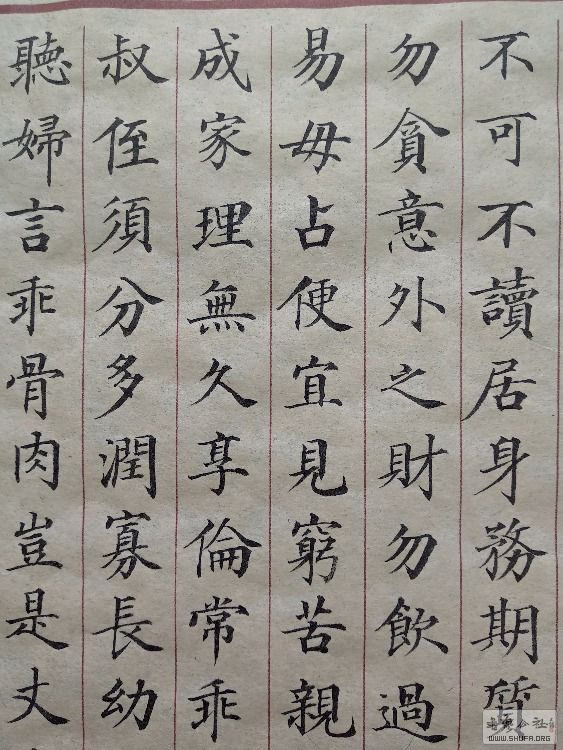 不可不讀居身務期質
勿貪意外之財勿飲過
易毋占便宜見窮苦親
成家理無久享倫常乖
叔侄須分多潤寡長幼
聽婦言乖骨肉豈是丈
WWW.SHUFA.ORG